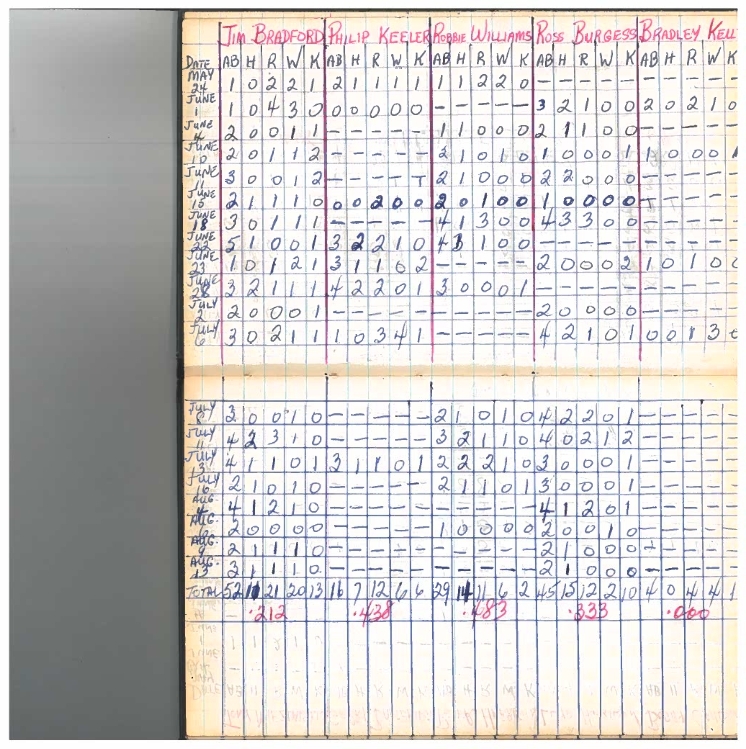 JIM BRADFORD PHILIP KEELER ROBBIE WILLIAMS ROSS BURGESS BRADLEY KELL
DATE AB H R W K AB H R W K AB H R W K AB H R W K AB H R W K
MAY 24 1 0 2 2 1 2 1 1 1 1 1 1 2 2 0 - - - - - - - - - -
JUNE 1 1 0 4 3 0 0 0 0 0 0 - - - - - 3 2 1 0 0 2 0 2 1 0
JUNE 4 2 0 0 1 1 - - - - - 1 1 0 0 0 2 1 1 0 0 - - - - -
JUNE 10 2 0 1 1 2 - - - - - 2 1 0 1 0 1 0 0 0 1 1 0 0 0 1
JUNE 11 3 0 0 1 2 - - - - - 2 1 0 0 0 2 2 0 0 0 - - - - -
JUNE 15 2 1 1 1 0 0 0 2 0 0 2 0 1 0 0 1 0 0 0 0 - - - - -
JUNE 18 3 0 1 1 1 - - - - - 4 1 3 0 0 4 3 3 0 0 - - - - -
JUNE 22 5 1 0 0 1 3 2 2 1 0 4 3 1 0 0 - - - - - - - - - -
JUNE 23 1 0 1 2 1 3 1 1 0 2 - - - - - 2 0 0 0 2 1 0 1 0 0
JUNE 28 3 2 1 1 1 4 2 2 0 1 3 0 0 0 1 - - - - - - - - - -
JULY 2 2 0 0 0 1 2 0 0 0 0 - - - - -
JULY 6 3 0 2 1 1 1 0 3 4 1 - - - - - 4 2 1 0 1 0 0 1 3 0
JULY 8 0 0 1 0 - - - - - 2 1 0 1 0 4 2 2 0 1 - - - - -
JULY 11 4 2 3 1 0 - - - - - 3 2 1 1 0 4 0 2 1 2 - - - - -
JULY 4 1 1 0 1 3 1 1 0 1 2 2 2 1 0 3 0 0 0 1 - - - - -
JULY 16 2 1 0 1 0 - - - - - 2 1 1 0 1 3 0 0 0 1 - - - - -
AUG. 4 1 2 1 0 - - - - - - - - - - 4 1 2 0 1 - - - - -
AUG. 2 0 0 0 0 - - - - - 1 0 0 0 0 2 0 0 1 0 - - - - -
AUG. 9 2 1 1 1 0 - - - - - - - - - - 2 1 0 0 0 - - - - -
AUG. 13 3 1 1 1 0 - - - - - - - - - - 2 1 0 0 0 - - - - -
TOTAL 52 11 21 20 13 16 7 12 6 6 29 14 11 6 2 45 15 12 2 10 4 0 4 4 1
.212 .438 .483 .333 .000